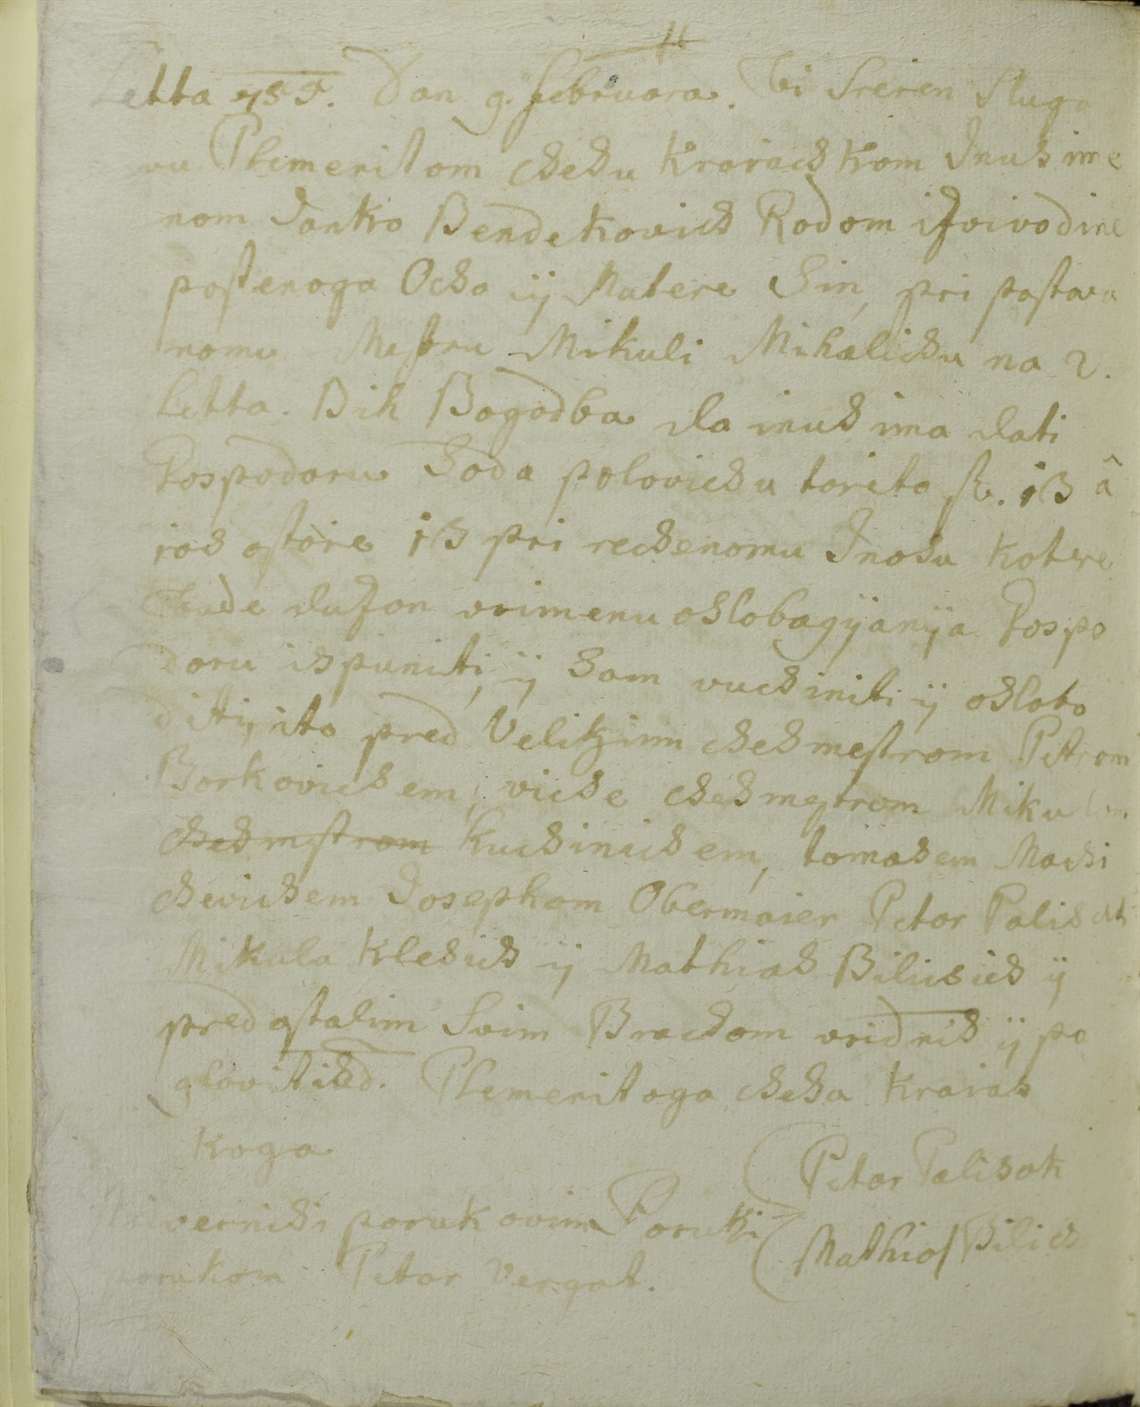 Letta 755. Dan 9. Februara. bi Sreien Sluga
vu Plemenitom csehu Kraiacskom Inus ime
nom Janko Bendekovics Rodom iz voivodine
postenoga Ocsa ij Matere Sin, pri postava
nomu Mestru Mikuli Mihalicsu na 2.
Letta. Bih Bogodba da inus ima dati
Gospodaru Soda polovicsu toieto fl. 13 â
ios ostore 13 pri recsenomu Inosu Kotere
bude duzon vrimenu oslobagyanya Gospo
doru ispuniti, ij Sam vucsiniti ij oslobo
diti, ito pred Velikim csehmestrom Petrom
Borkovicsem, vicse csehmestrom Mikulom
csehmestrom Kucsinicsem, tomasem Macsi
csevicsem Josephom Obermaier Petar Palisak
Mikula Klesics ij Mathias Bilusics ij
pred ostalim Svim Bracsom vridnih ij po
glovitih. Plemenitoga cseha Kraias
koga
verniksi porukovim Poruki Petar Palisak
porukom Petar Vergat. Mathias Bilics